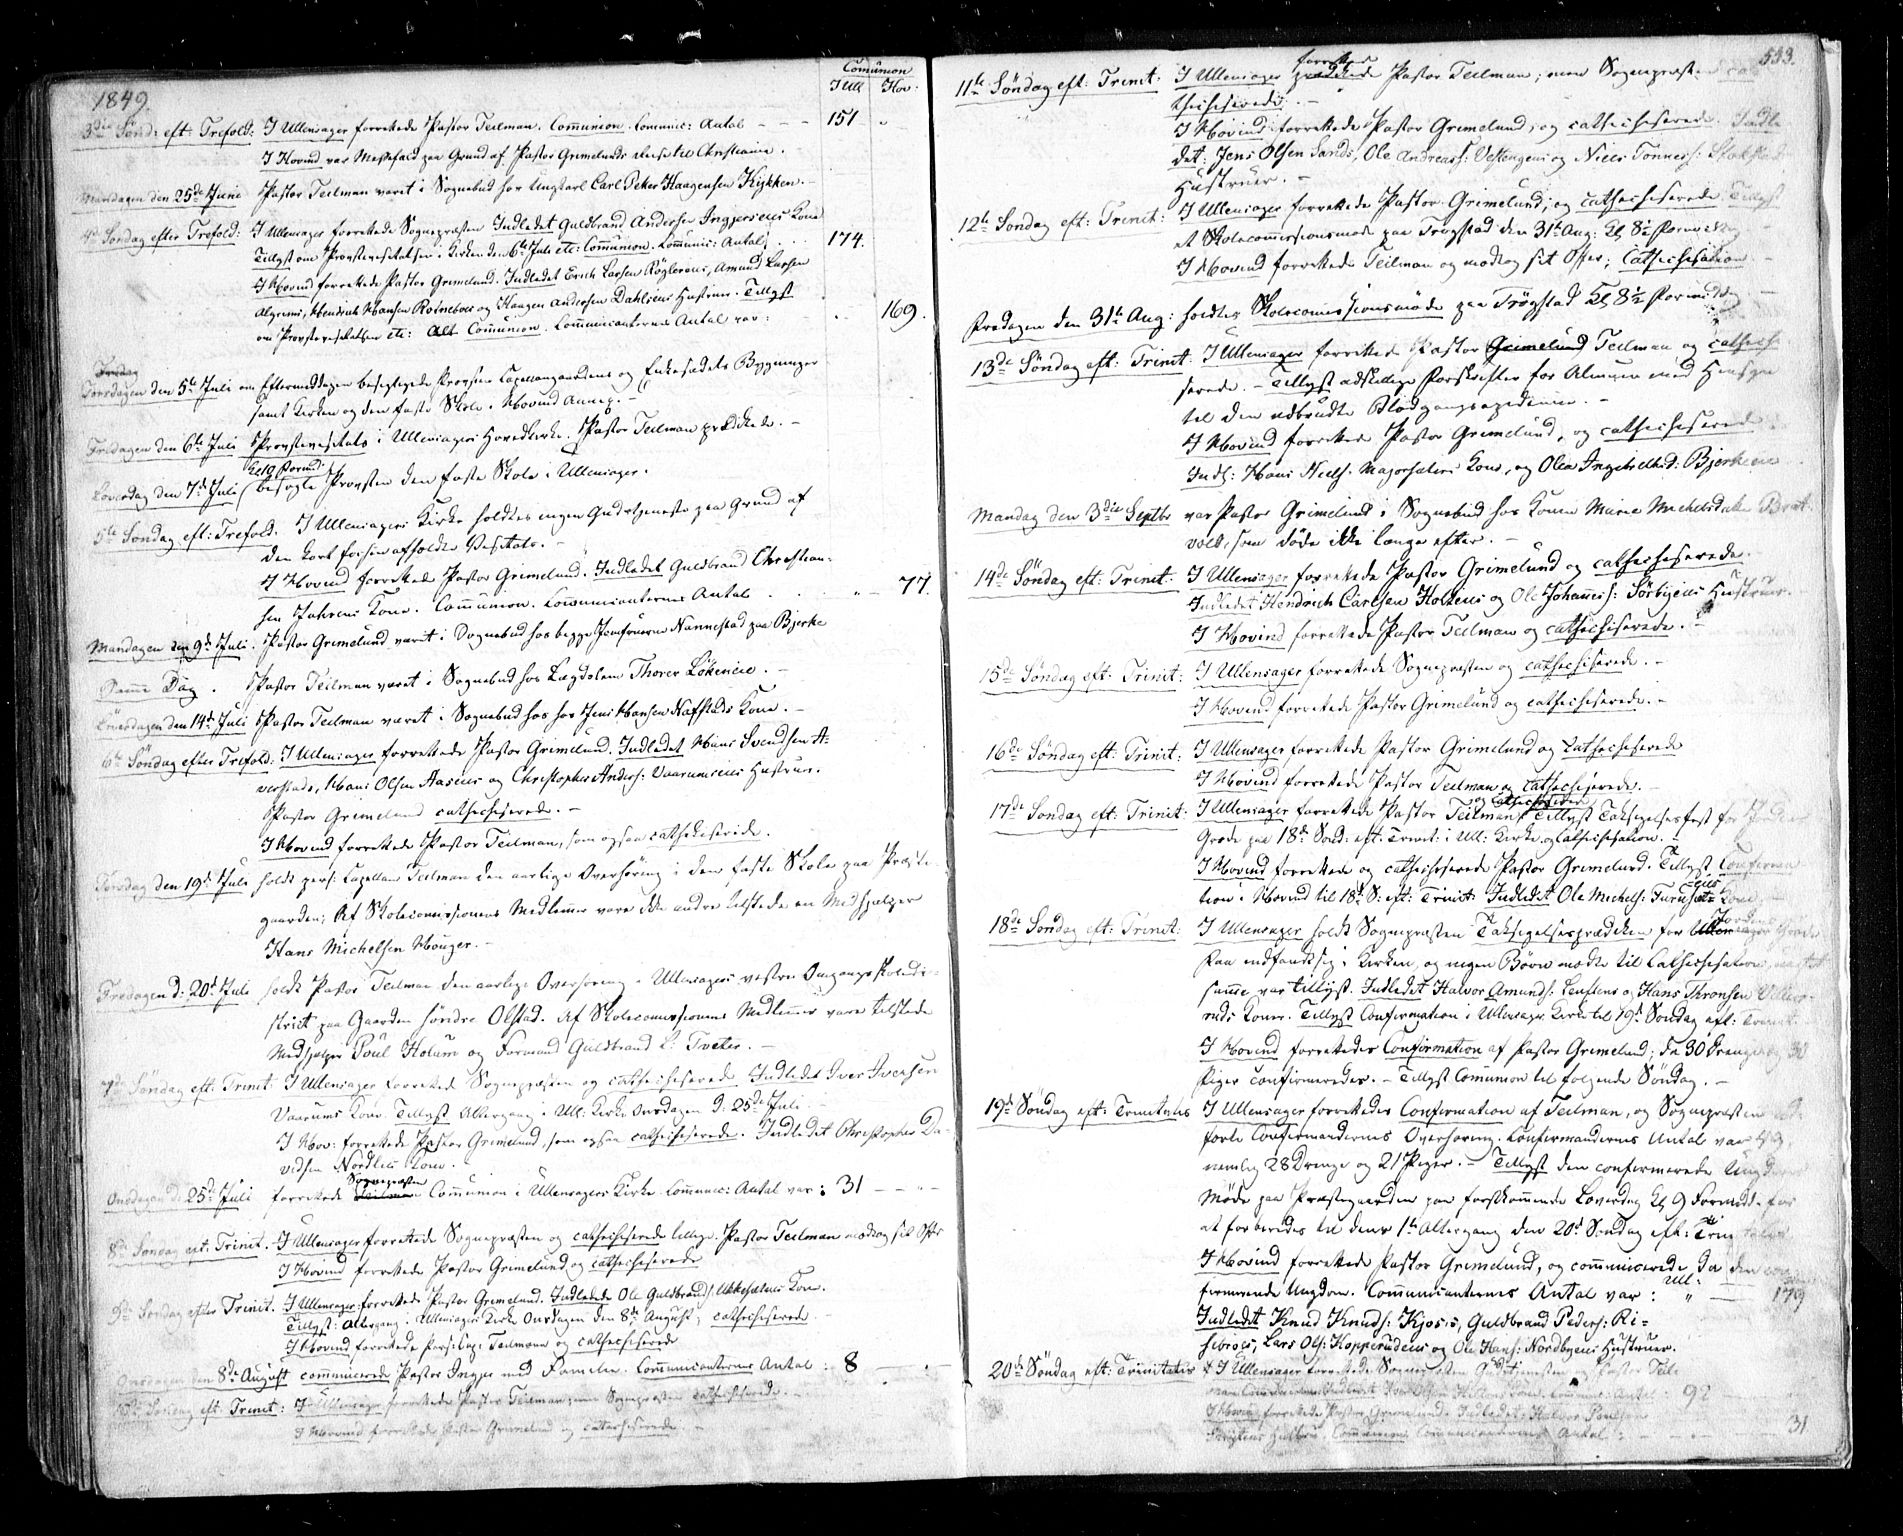 1849.
Comunion
Ull Hov:
3die Sønd: eft: Trefold: I Ullensager forrettede Pastor Teilman. Communion. Comunic: Antal - - - 151 - "
I Hovind var Messefald paa Grund af Pastor Grimelunds Reise til Christiania.
Mandagen den 25de Juni Pastor Teilman været i Sognebud hos Ungkarl Carl Peter Haagensen Kykken. -
4de Søndag efter Trefold: I Ullensager forrettede Sognepræsten Indledet Guldbrand Andersen Kone
Tillyst om Provstevisitatsen i Kirken den 6te Juli etc: Communion. Communic: Antal . . . 174.
I Hovind forrettede Pastor Grimelund. Indledet Erich Larsen Amund Larsen
Hendrich Hansen og Haagen Andersen Dahlseies Hustruer. Tillyst
om Provstevisitatsen etc: Alt Communion. Communicanternes Antal var: . . 169.
Torsdagen den 5te Juli om Eftermiddagen besigtigede Provsten Capellangaardens og Enkesædets Bygninger
samt Kirken og den faste Skole i Hovind Annex. -
Fredagen den 6te Juli Provstevisitats i Ullensagers Hovedkirke. Pastor Teilman prædikede. -
Kl 10 Formid:
Løverdag den 7de Juli besøgte Provsten den faste Skole i Ullensager.
5te Søndag eft: Trefold. I Ullensagers Kirke holdtes ingen Gudstjeneste paa Grund af
den kort forhen afholdte Visitats. -
I Hovind forrettede Pastor Grimelund. Indledet Guldbrand Christian-
sen Jahrens Kone. Communion. Communicanternes Antal . . " - 77.
Mandagen den 9de Juli. Pastor Grimelund været i Sognebud hos begge Jomfruerne Nannestad paa Bjerke
Samme Dag. Pastor Teilman været i Sognebud hos Lægdslem Thorer Løkeneie. -
Løverdagen den 14de Juli Pastor Teilman været i Sognebud hos hos Jens Hansen Nafstads Kone. -
6te Søndag efter Trefold: I Ullensager forrettede Pastor Grimelund. Indledet Hans Svendsen A-
verstads, Hans Olsen Aaseies og Christopher Anders: Vaarumseies Hustruer.
Pastor Grimelund cathechiserede. -
I Hovind forrettede Pastor Teilman, som ogsaa cathekiserede.
Torsdag den 19de Juli holdt pers: Capellan Teilman den aarlige Overhøring i den faste Skole paa Præste-
gaarden; Af Skolecommissionens Medlemmer vare ikke andre tilstede en Medhjælper
Hans Michelsen Houger. -
Fredagen d: 20de Juli holdt Pastor Teilman den aarlige Overhøring i Ullensagers vestre Omgangsskoledi-
strict paa Gaarden søndre Olstad. Af Skolecommissionens Medlemmer vare tilstede
Medhjelper Poul Holum og Formand Guldbrand L: Tveter. -
7de Søndag eft: Trinit: I Ullensager forrettede Sognepræsten og cathechiserede Indledet Iver Iversen
Vaarums Kone. Tillyst Altergang i Ull: Kirke Onsdagen d: 25de Juli. -
I Hov: forrettede Pastor Grimelund, som ogsaa cathechiserede. Indledet Christopher Da-
vidsen Nordlies Kone.
Sognepræsten
Onsdagen d: 25de Juli forrettede Teilman Communion i Ullensagers Kirke. Communic: Antal var: 31 - - -
8de Søndag eft: Trinit. I Ullensager forrettede Sognepræsten og cathechiserede tillige. Pastor Teilman modtog sit Offer
I Hovind forrettede Pastor Grimelund og cathechiserede
9de Søndag efter Trinit. I Ullensager forrettede Pastor Grimelund. Indledede Ole Guldbrands: Kone.
Tillyst: Altergang i Ullensagers Kirke Onsdagen den 8de August; cathechiserede
I Hovind forrettede Pers: Cap: Teilmann og cathechiserede
Onsdagen den 8de August communicerede Pastor Inger med Familie. Communicanternes Antal: 8 - -
10de Søndag eft: Trinit: I Ullensager forrettede Pastor Teilman; men Sognepræsten cathechiserede. -
I Hovind forrettede Pastor Grimelund og catechiserede. -
533.
forrettede
11te Søndag eft: Trinit: I Ullensager prædikede Pastor Teilman; men Sognepræsten ca-
thechiserede. -
I Hovind forrettede Pastor Grimelund, og cathechiserede. Indle-
det: Jens Olsen Sands, Ole Andreas: Vestengens og Niels Tønnes:
Hustruer. -
12te Søndag eft: Trinit: I Ullensager forrettede Pastor Grimelund; og cathechiserede. Tillyst
et Skolecommissionsmøde paa Trøgstad den 31te Aug: Kl 8½ Formiddag
I Hovind forrettede Teilman og modtog sit Offer; Cathechisation -
Fredagen den 31te Aug: holdtes Skolecomissionsmøde paa Trögstad Kl 8½ Formiddag -
13de Søndag eft: Trinit: I Ullensager forrettede Pastor Grimelund Teilman og cathechi-
serede. - Tillyst adskillige Forskrifter for Almuen med Hensyn
til den udbrudte Blodgangsepidemie. -
I Hovind forrettede Pastor Grimelund, og cathechiserede
Indl: Hans Niels: Kone, og Olea Ingebrethsd: Bjerkeeie
Mandag den 3die Septbr var Pastor Grimelund i Sognebud hos Konen Marie Michelsdatter Brat-
vold, som døde ikke længe efter. -
14de Søndag eft: Trinit: I Ullensager forrettede Pastor Grimelund og cathechiserede.
Indledet Hendrich Carlsen Holteies og Ole Johannes: Sørbyeies Hustruer.
I Hovind forrettede Pastor Teilman og cathechiserede. -
15de Søndag eft: Trinit: I Ullensager forrettede Sognepræsten og cathechiserede. -
I Hovind forrettede Pastor Grimelund og cathechiserede. -
16de Søndag eft: Trinit: I Ullensager forrettede Pastor Grimelund og Cathechiserede
I Hovind forrettede Pastor Teilman og cathechiserede. -
og cathechiserede
17de Søndag eft: Trinit: I Ullensager forrettede Pastor Teilman. Tillyst Taksigelsesfest for Jordens
Grøde paa 18de Sønd: eft: Trinit: i Ull: Kirke og Cathechisation. -
I Hovind forrettede og cathechiserede Pastor Grimelund. Tillyst Confirma-
tion i Hovind til 18de S: eft: Trinit: Indledet Ole Michels: Kone. -
Jordens
18de Søndag eft: Trinit: I Ullensager holdt Sognepræsten Taksigelsesprædiken for Grøde
Faa indfandt sig i Kirken, og ingen Børn mødte til Cathechisation,
samme var tillyst. Indledet Halvor Amunds: og Hans Thronsen
Koner. Tillyst Confirmation i Ullensagers Kirke til 19de Søndag eft: Trinit.
I Hovind forrettedes Confirmation af Pastor Grimelund; da 30 Drenge og 30
Piger confirmeredes. - Tillyst Comunion til følgende Søndag. -
19de Søndag eft: Trinitatis I Ullensager forrettedes Confirmation af Teilman, og Sognepræsten
Confirmandernes Overhøring. Confirmandernes Antal var 49,
nemlig 28 Drenge og 21 Piger. - Tillyst den confirmerede Ungdoms
Møde paa Præstegaarden paa førstkommende Løverdag Kl 9 Formidd: for
at forberedes til deres 1te Altergang den 20de Søndag eft: Trinitatis
I Hovind forrettede Pastor Grimelund, og communicerede da den con-
Ull:
firmerede Ungdom. Communicanternes Antal var: " - 179
Indledet Knud Knuds: Guldbrand Peders: Ri-
Lars Ols: Kopperudeies og Ole Hans: Nordbyeies Hustruer.
20de Søndag eft: Trinitatis I Ullensager forrettede Sognepræsten Gudstjenesten og Pastor Teil-
man Communion. Indledet Kone. Communic: Antal: 92
I Hovind forrettede Pastor Grimelund. Indledet: Halvor Poulsen
Hustru. Communion. Communicanternes Antal: - - - - 31